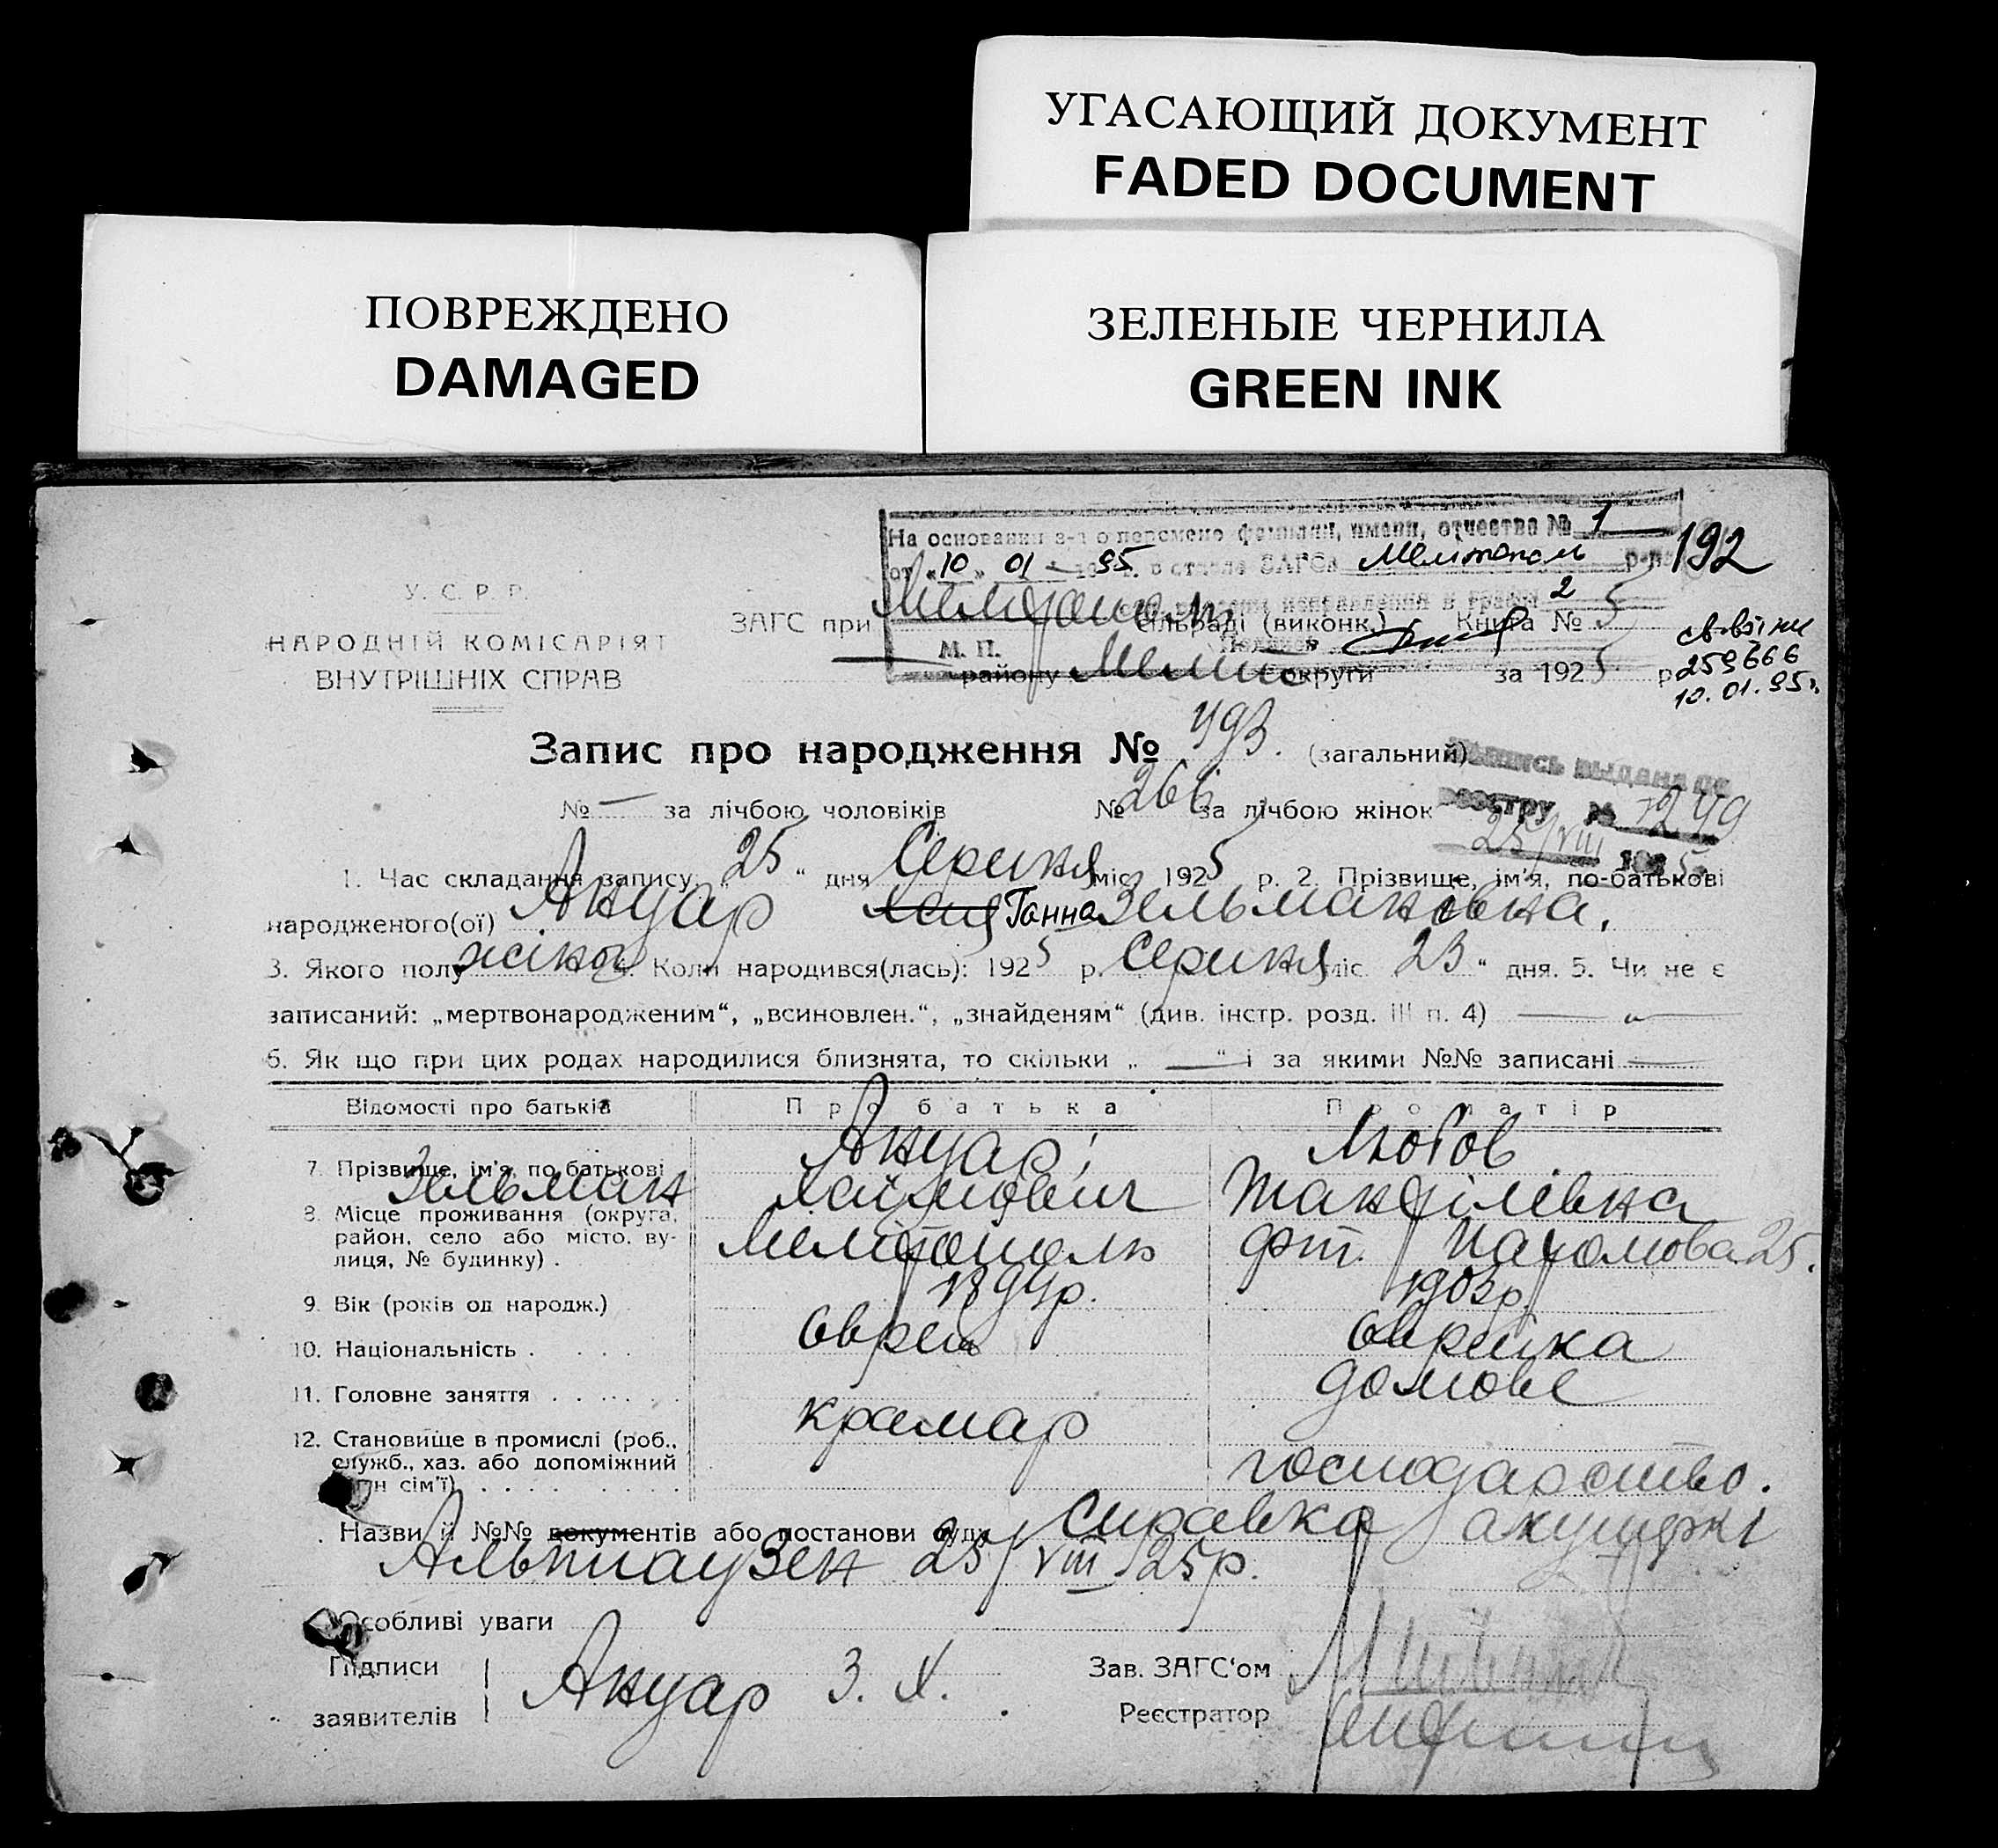 УГАСАЮЩИЙ ДОКУМЕНТ
FADED DOCUMENT
ПОВРЕЖДЕНО
DAMAGED
ЗЕЛЕНЫЕ ЧЕРНИЛА
GREEN INK
На основании з-я о перемене фамилии, имени, отчества № 1
от «10» 01 1995 г. в отделе ЗАГСа Мелитополь р-на
192
исправления в графе 2
У. С. Р. Р.
НАРОДНІЙ КОМІСАРІЯТ
ВНУТРІШНІХ СПРАВ
ЗАГС при Мелітополь сільраді (виконк.) Книга № 5
М. П. Подпись
району Меліт округи за 1925 р.
259666
10.01.95г.
Запис про народження № 493. (загальний)
выпись выдана по
№ — за лічбою чоловіків № 266 за лічбою жінок
реестру № 7249
25/VIII 1925
1. Час складання запису „25“ дня Серпня міс. 1925 р. 2. Прізвище, ім'я, по-батькові
народженого(ої) Ануар Хая Ганна Зельмановна.
3. Якого полу жіноч 4. Коли народився(лась): 1925 р. Серпня міс 23 “ дня. 5. Чи не є
записаний: „мертвонародженим“, „всиновлен.“, „знайденям“ (див. інстр. розд. III п. 4) —
6. Як що при цих родах народилися близнята, то скільки „ — “ і за якими №№ записані —
Відомості про батьків Про батька Про матір
7. Прізвище, ім'я, по батькові Ануар, Любов
Зельман Хаїмович
8. Місце проживання (округа, район, село або місто, вулиця, № будинку) . Мелітополь 25.
9. Вік (років од народж.) 1894р. 1903р.
10. Національність . . . . Єврей Єврейка
11. Головне заняття . . . . . . крамар домове
12. Становище в промислі (роб., служб., хаз. або допоміжний член сім'ї) . . . . . . . . . господарство.
Назви й №№ документів або постанови суду Справка акушеркі
Альтгаузен 25/VIII 25р.
Особливі уваги
Підписи
заявителів Ануар З. Х.
Зав. ЗАГС'ом
Реєстратор